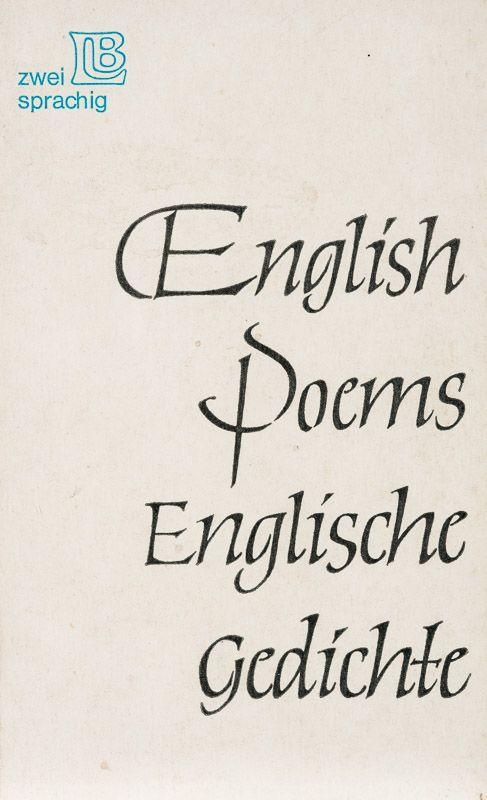 zwei LB
sprachig
English
Poems
Englische
Gedichte